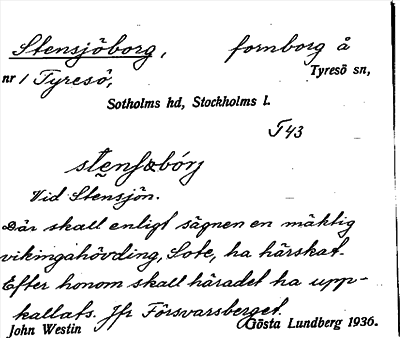 Stensjöborg, fornborg å
nr 1 Tyresö, Tyresö sn,
Sotholms hd, Stockholms l.
T 43
Vid Stensjön.
Där skall enligt sägnen en mäktig
vikingahövding, Sote, ha härskat.
Efter honom skall häradet ha upp-
kallats. Jfr Försvarsberget.
John Westin Gösta Lundberg 1936.